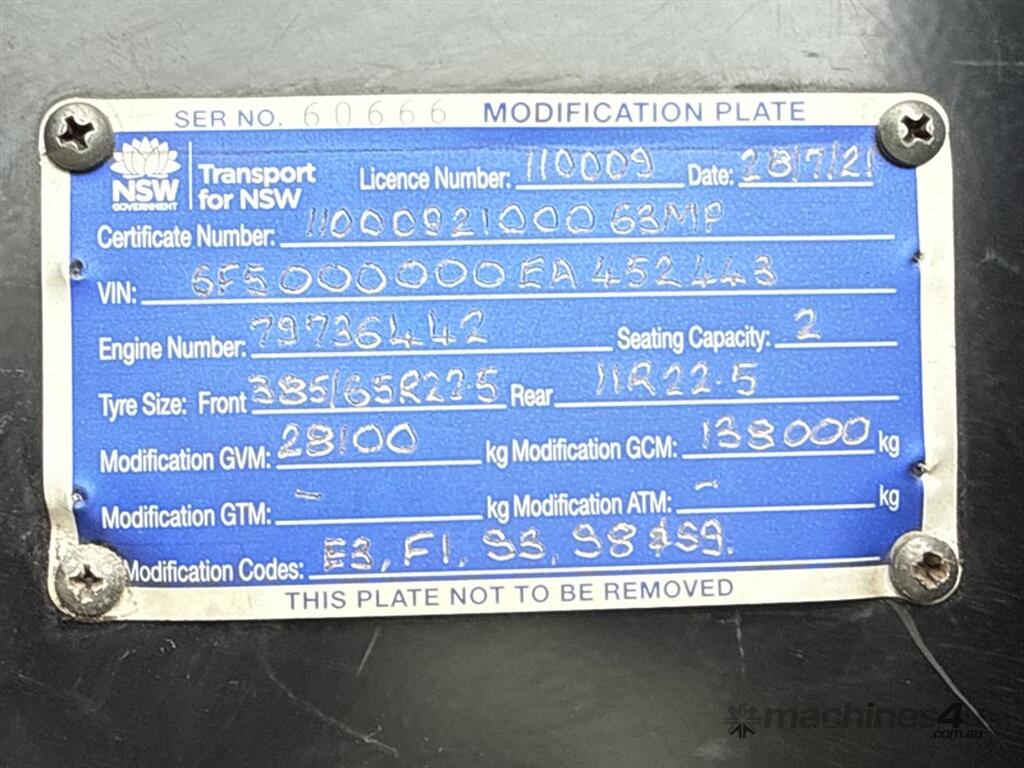 SER NO. 60666 MODIFICATION PLATE
NSW GOVERNMENT Transport for NSW Licence Number: 110009 Date: 28/7/21
Certificate Number: 11000921000 63MP
VIN: 6F5000000EA452443
Engine Number: 79736442 Seating Capacity: 2
Tyre Size: Front 385/65R22.5 Rear 11R22.5
Modification GVM: 28100 kg Modification GCM: 138000 kg
Modification GTM: - kg Modification ATM: - kg
Modification Codes: E3, F1, S3, S8 & S9.
THIS PLATE NOT TO BE REMOVED
machines4u
.com.au